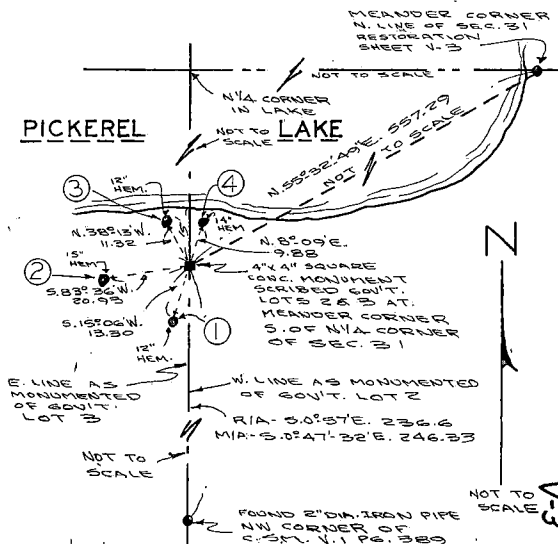 MEANDER CORNER
N. LINE OF SEC. 31
RESTORATION
SHEET V-3
NOT TO SCALE
N 1/4 CORNER
IN LAKE
PICKEREL LAKE
NOT TO
SCALE
N.55°-32'-49"E. 557.29
NOT TO SCALE
12"
HEM.
3
4
14"
HEM
N.38°-13'W.
11.32
N.8°-09'E.
9.88
2
15"
HEM
S.83°-36'W.
20.93
4"x4" SQUARE
CONC. MONUMENT
SCRIBED GOV'T.
LOTS 2&3 AT.
MEANDER CORNER
S. OF N1/4 CORNER
OF SEC. 31
S.15°-06'W.
13.30
1
12"
HEM.
E. LINE AS
MONUMENTED
OF GOV'T.
LOT 3
W. LINE AS MONUMENTED
OF GOV'T. LOT 2
R/A- S.0°-57'E. 236.6
M/A- S.0°-47'-32"E. 246.33
NOT TO
SCALE
N
NOT TO
SCALE
V-3
FOUND 2" DIA. IRON PIPE
NW CORNER OF
C.S.M. V.1 PG. 389